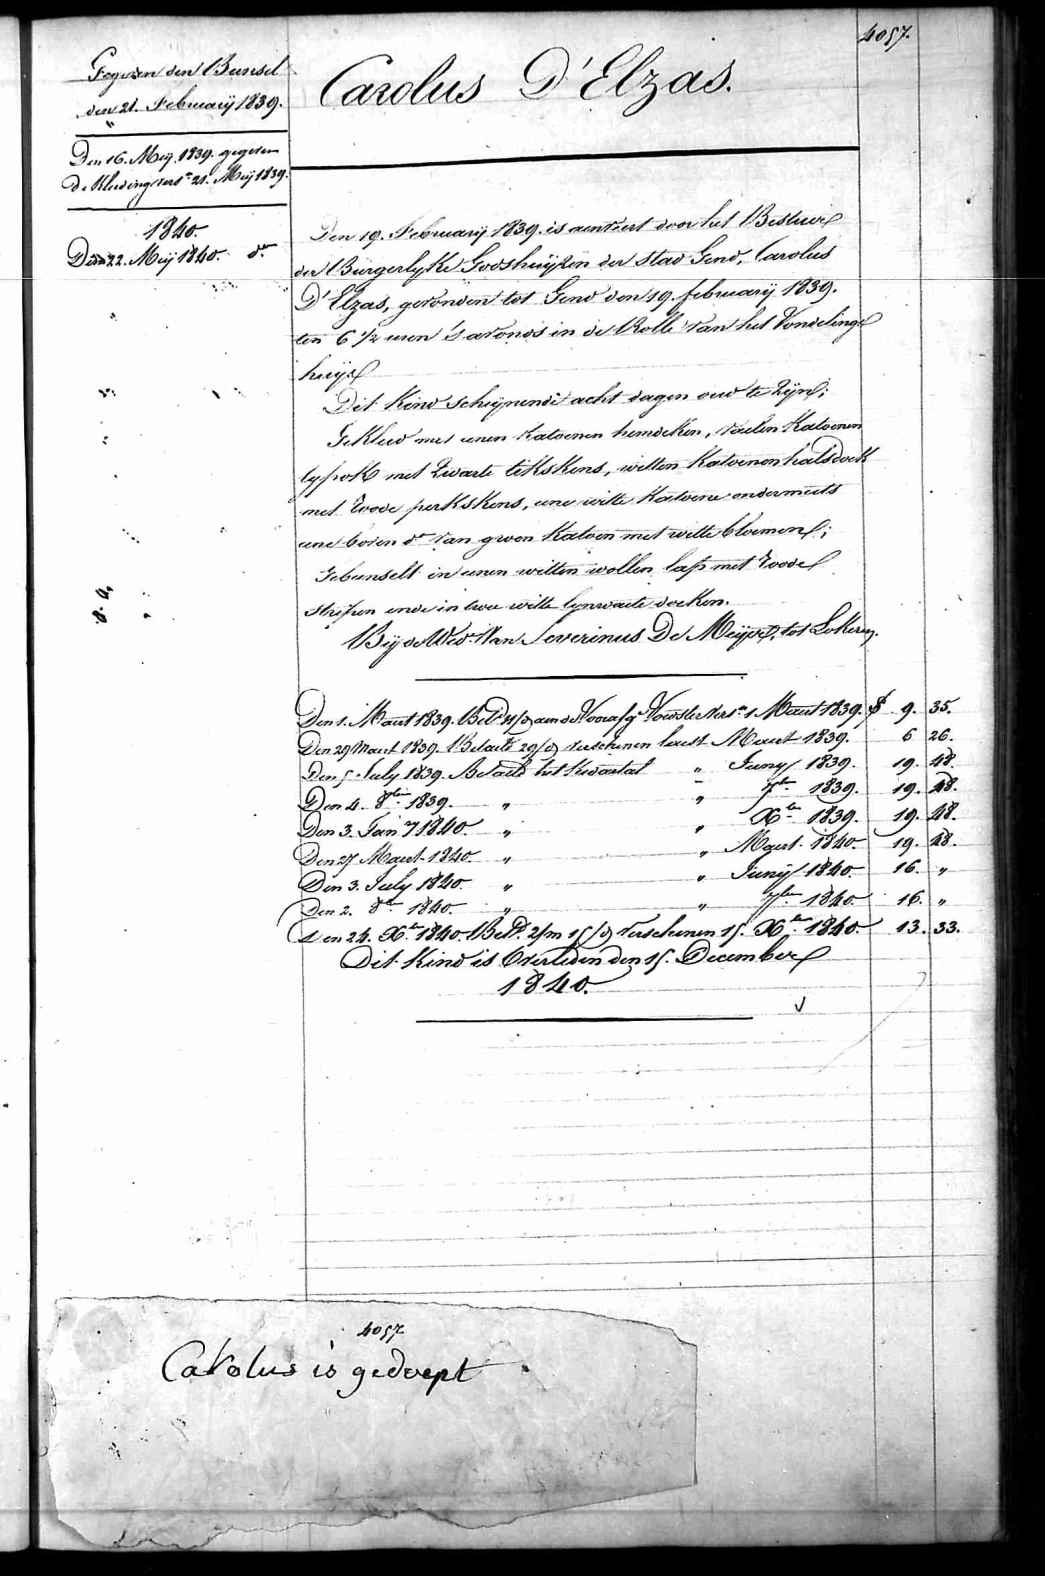 4057.
Carolus D'Elzas.
Gegeven den Bunsel
den 21. Februarij 1839.
Den 16. Meij 1839. gegeven
de Kleeding vers.n 21. Meij 1839.
1840.
Den 22. Meij 1840. d.o
Den 19. Februarij 1839. is aenveert door het Bestuur
der Burgerlyke Godshuijzen der stad Gend, Carolus
D'Elzas, gevonden tot Gend den 19. februarij 1839.
ten 6 ½ uren 's avonds in de Rolle van het Vondeling
huijs
Dit Kind schijnende acht dagen oud te zijn;
Gekleed met eenen Katoenen hemdeken, Katoenen
lyfrok met zwarte tikskens, witten Katoenen halsdoek
met roode perkskens, eene witte Katoene ondermuts
eene boven d.o van groen Katoen met witte bloemen;
Gebunselt in eenen witten wollen lap met roode
stripen ende in twee witte lynwaete doeken.
Bij de Wed.e Van Severinus De Meijer, tot Lokeren.
Den 1. Maert 1839. Bet.d 11/d aen de Voedster vers.n 1. Maert 1839. 9. 35.
Den 29 Maert 1839. Betaeld 29/d verschenen laest Maert 1839. 6 26.
Den 5 July 1839. Betaeld het Kwartal " Juny 1839. 19. 48.
Den 4. 8.ber 1839. " " 7.ber 1839. 19. 48.
Den 3. Jan.y 1840. " " X.ber 1839. 19. 48.
Den 27 Maert 1840. " " Maert 1840. 19. 48.
Den 3. July 1840. " " Junij 1840. 16. "
Den 2. 8.ber 1840. " " 7.ber 1840 16. "
Den 24. X.ber 1840. Bet.d 2/m 15/d verschenen 15. X.ber 1840. 13. 33.
Dit Kind is Overleden den 15. December
1840.
4057
Carolus is gedoept